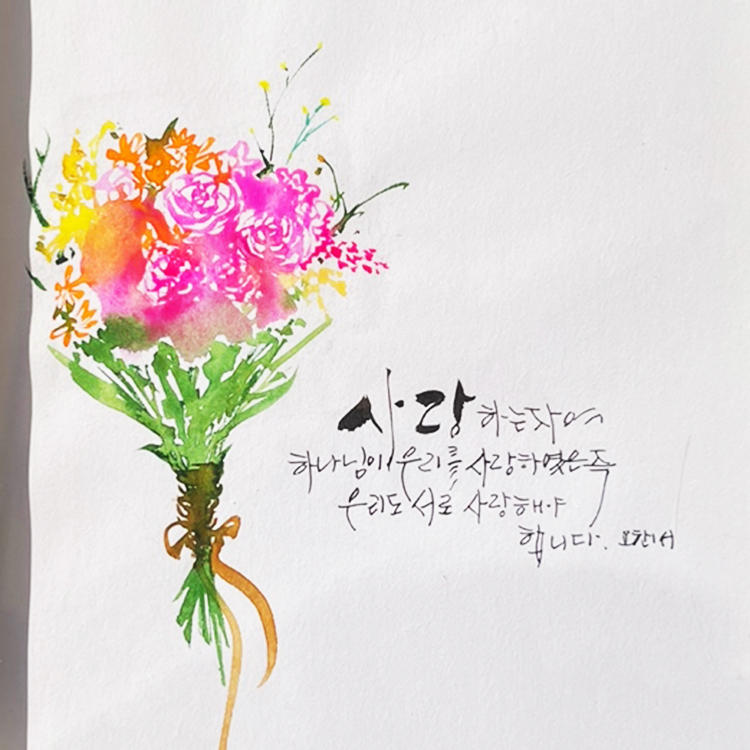 사랑하는 자여
하나님이 우리를 사랑하였은즉
우리도 서로 사랑해야
합니다. 요한1서